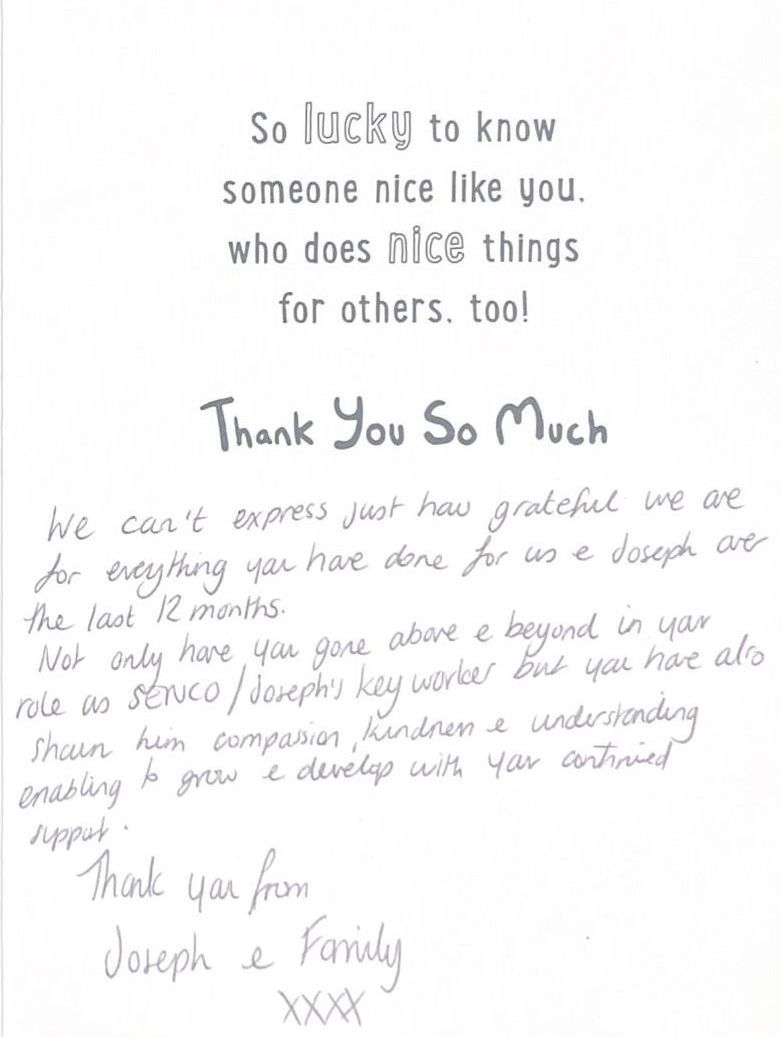 So lucky to know
someone nice like you.
who does nice things
for others. too!
Thank You So Much
We can't express just how grateful we are
for everything you have done for us & Joseph over
the last 12 months.
Not only have you gone above & beyond in your
role as SENCO/Joseph's key worker but you have also
shown him compassion, kindness & understanding
enabling to grow & develop with your continued
support.
Thank you from
Joseph & Family
XXXX